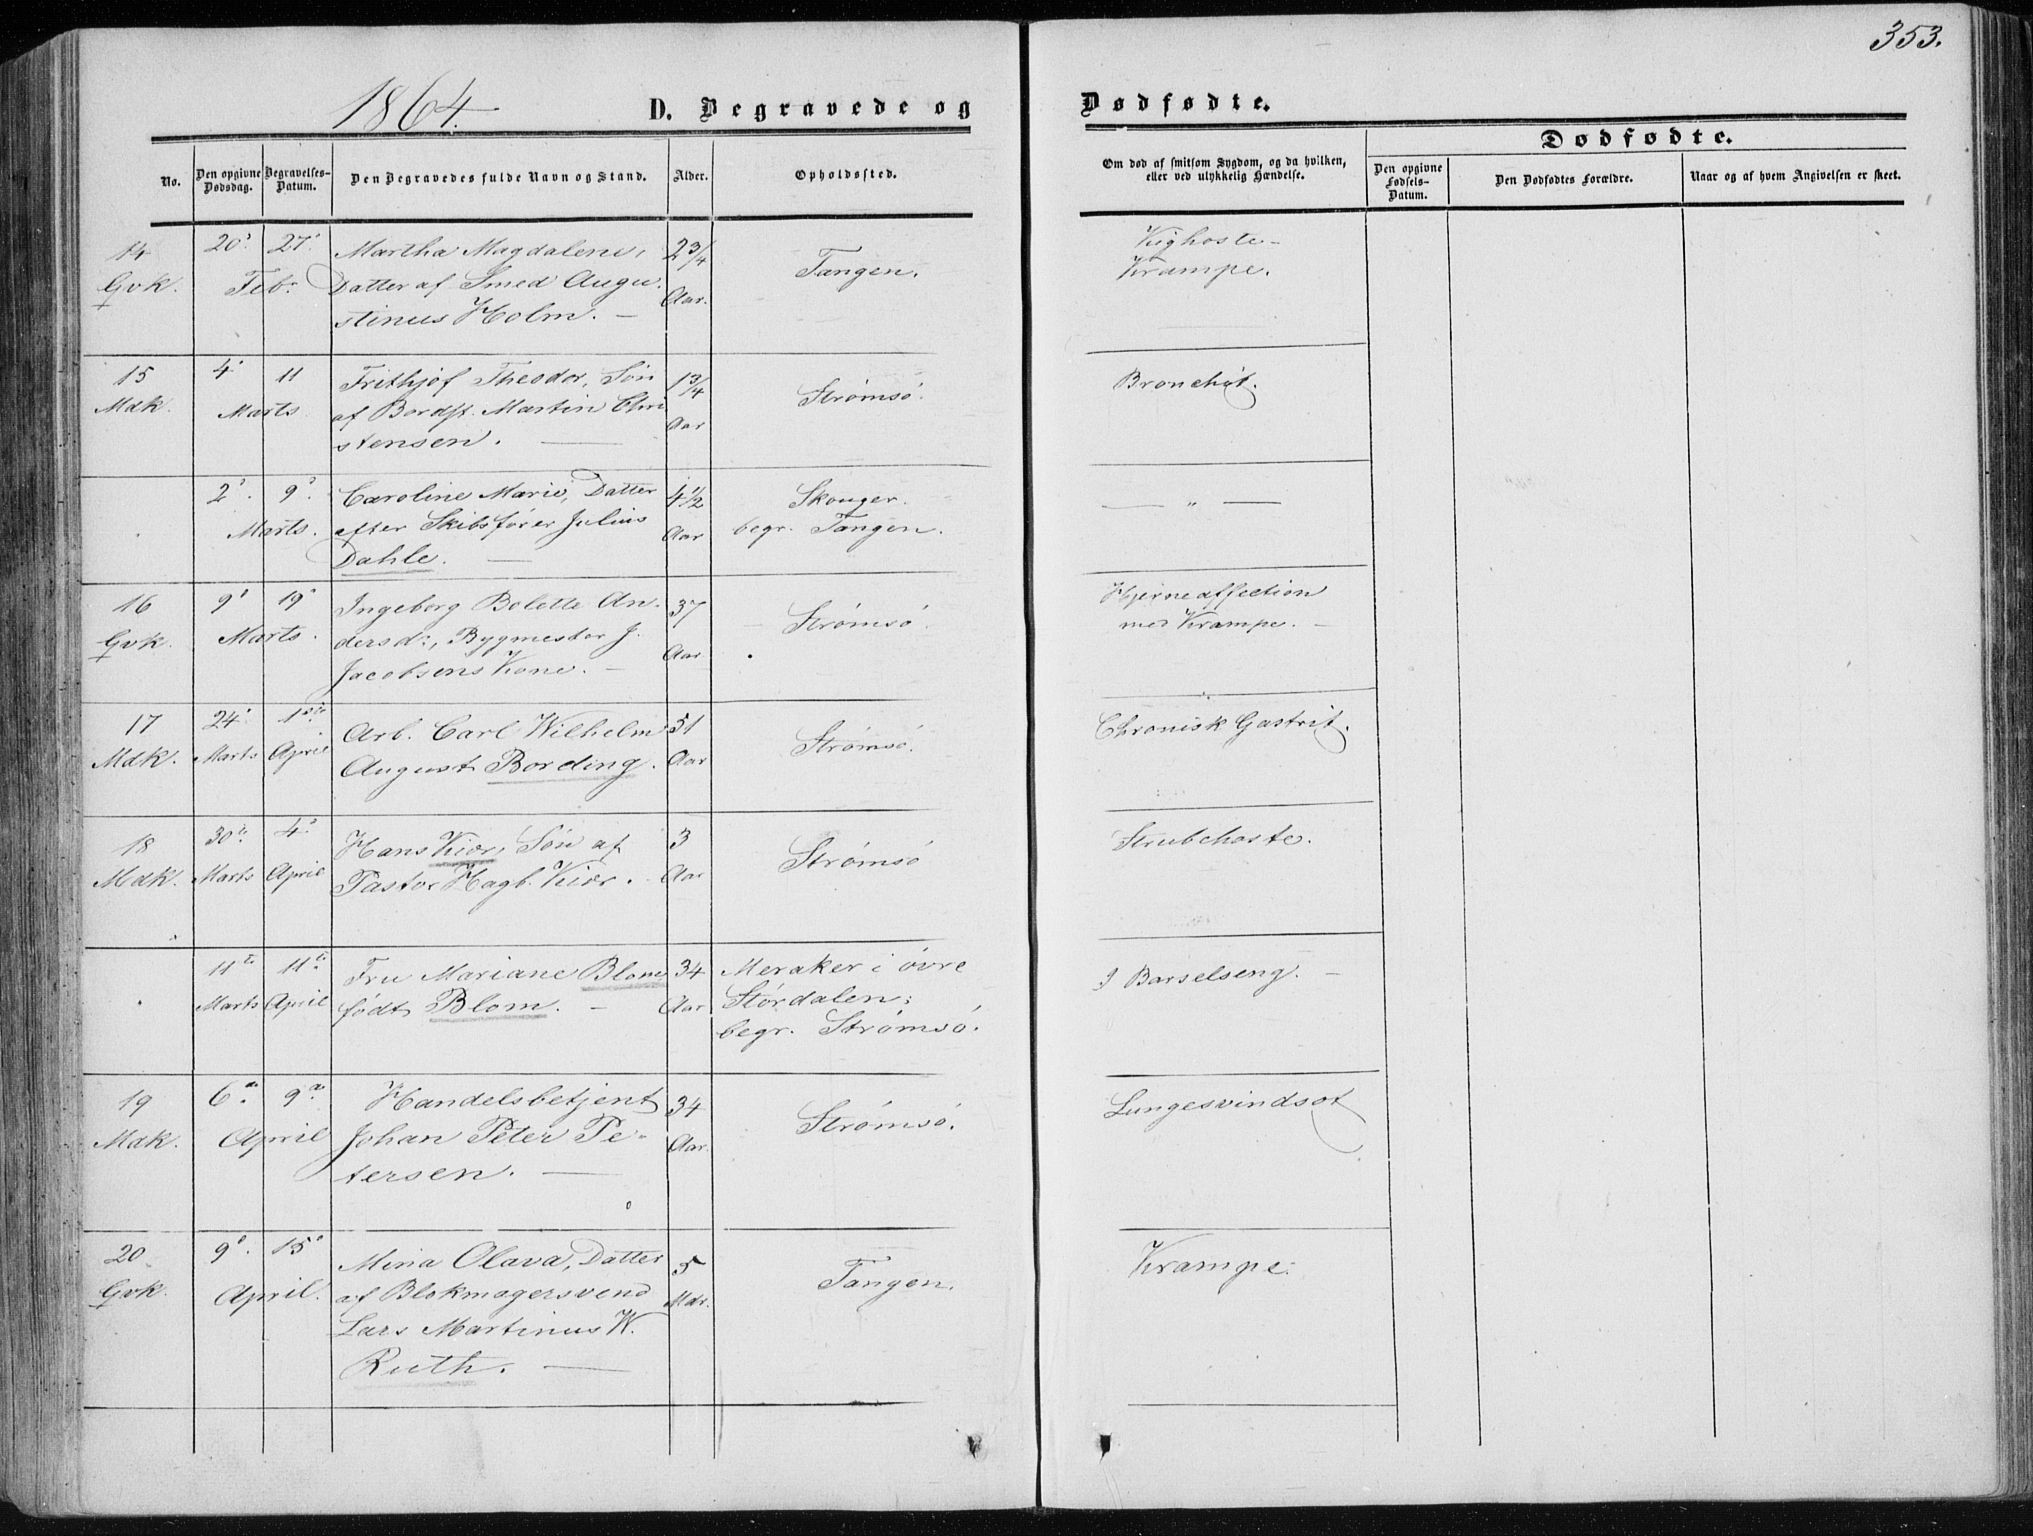 353.
1864.
D. Begravede og Dødfødte.
No.
Den opgivne Dødsdag.
Begravelses-Datum.
Den Begravedes fulde Navn og Stand.
Alder.
Opholdssted.
Om død af smitsom Sygdom, og da hvilken,
eller ved ulykkelig Hændelse.
Dødfødte.
Den opgivne Fødsels-Datum.
Den Dødfødtes Forældre.
Naar og af hvem Angivelsen er skeet.
14 Qvk.
20. 27. Feb.
Martha Magdalene,
Datter af Smed Augu-
stinus Holm. —
2¾ Aar.
Tangen.
Kighoste-
Krampe.
15 Mdk.
4 11 Marts
Frithjof Theodor, Søn
af Bordst. Martin Chri
stensen. —
1¾ Aar
Strømsø.
Bronchit.
2. 9. Marts.
Caroline Marie, Datter
efter Skibsfører Julius
Dahle. —
4½ Aar
Skouger.
begr. Tangen.
— „ —
16 Qvk.
9 19 Marts.
Ingeborg Bolette An-
dersd:, Bygmester J.
Jacobsens Kone. —
37 Aar
Strømsø.
Hjerneaffection
med Krampe. —
17 Mdk.
24. Marts 1ste April
Arb. Carl Wilhelm
August Bording.
51 Aar
Strømsø.
Chronisk Gastrit.
18 Mdk.
30te Marts 4. April
Hans Kiær, Søn af
Pastor Hagb. Kiær.
3 Aar
Strømsø
Strubehoste.
11te Marts 11te April
Fru Mariane Blom
født Blom. —
34 Aar
Meraker i øvre
Størdalen;
begr. Strømsø.
I Barselseng. —
19 Mdk.
6te 9de April
Handelsbetjent
Johan Peter Pe-
tersen. —
34 Aar.
Strømsø.
Lungesvindsot
20 Qvk.
9. 15. April.
Mina Olava, Datter
af Blokmagersvend
Lars Martinus W.
Ruth. —
5 Mdr.
Tangen.
Krampe.